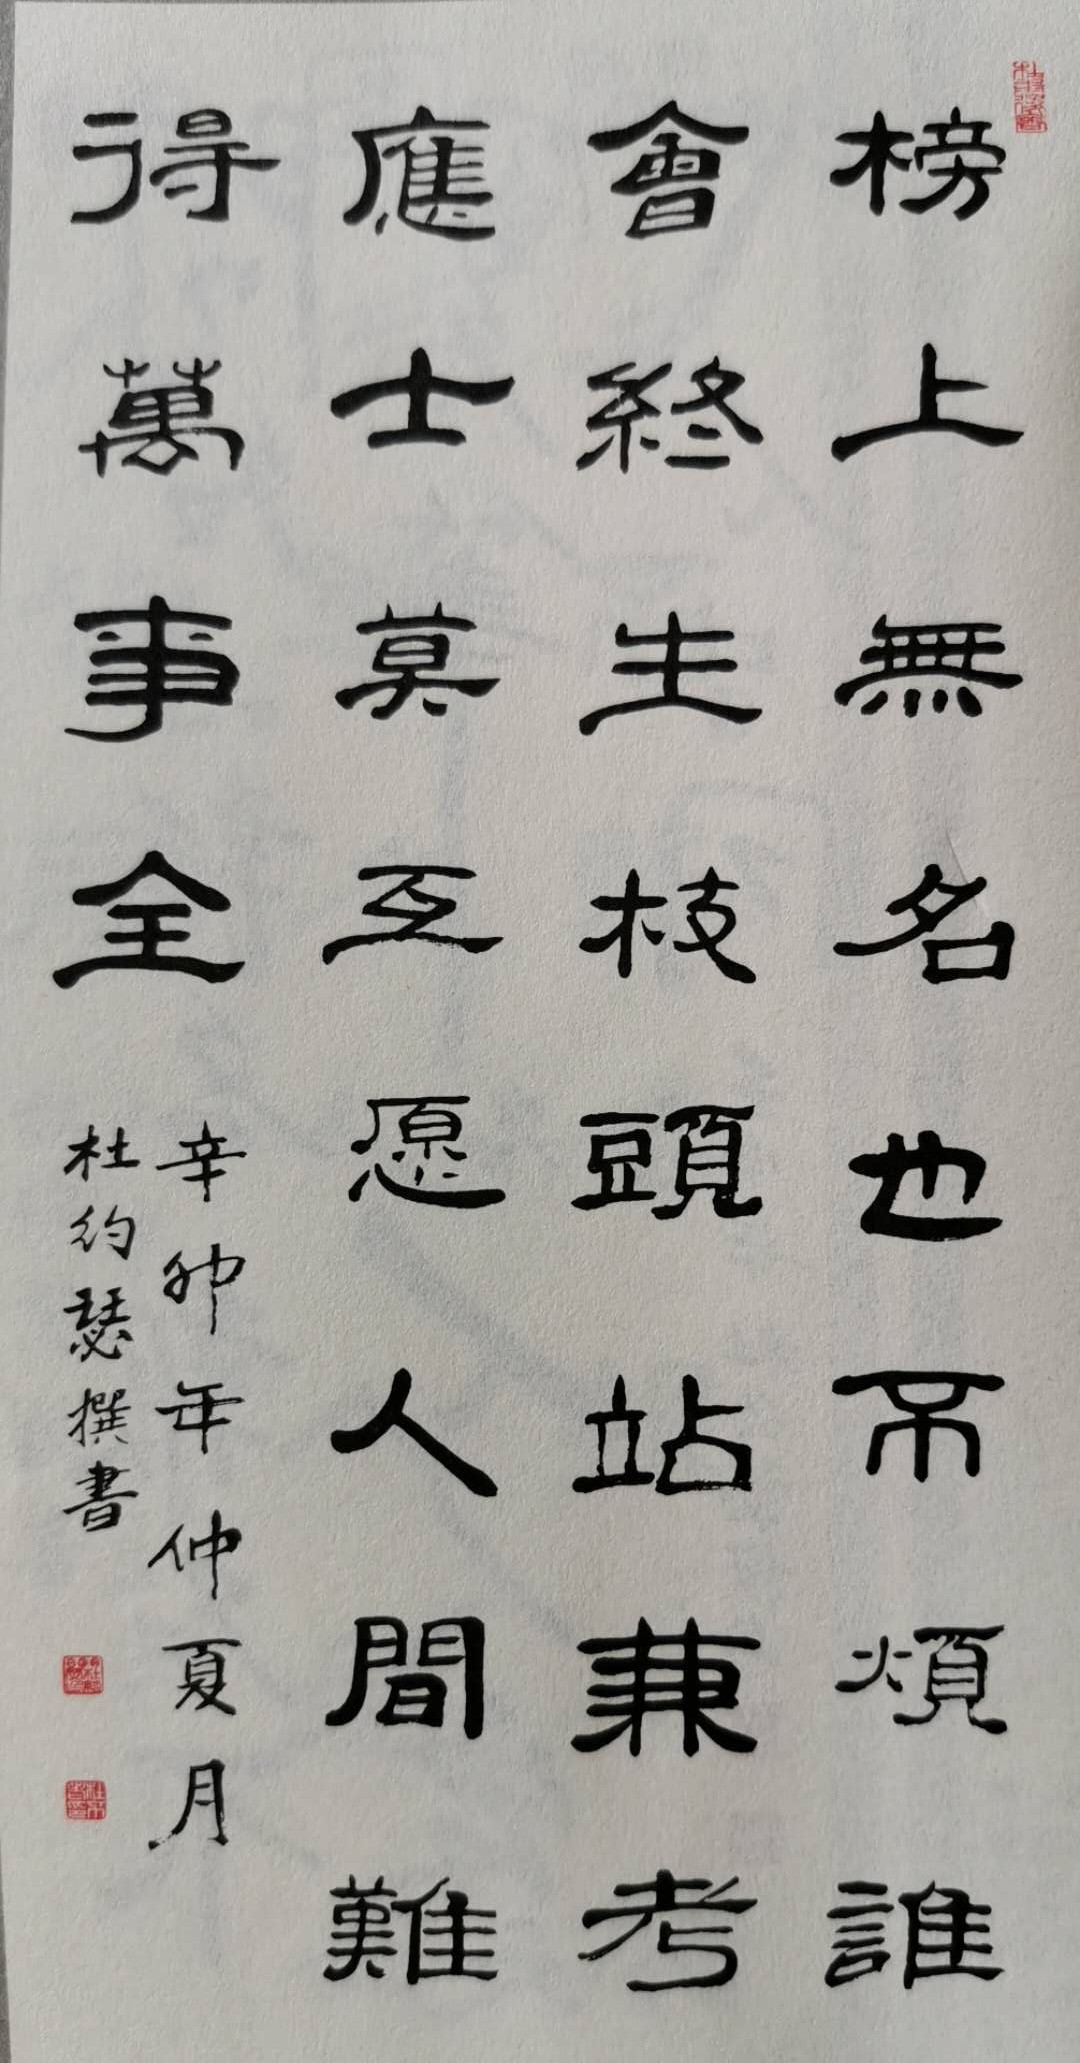 榜上無名也不煩誰
會終生枝頭站兼考
應士莫互愿人間難
得萬事全
辛卯年仲夏月
杜約瑟撰書